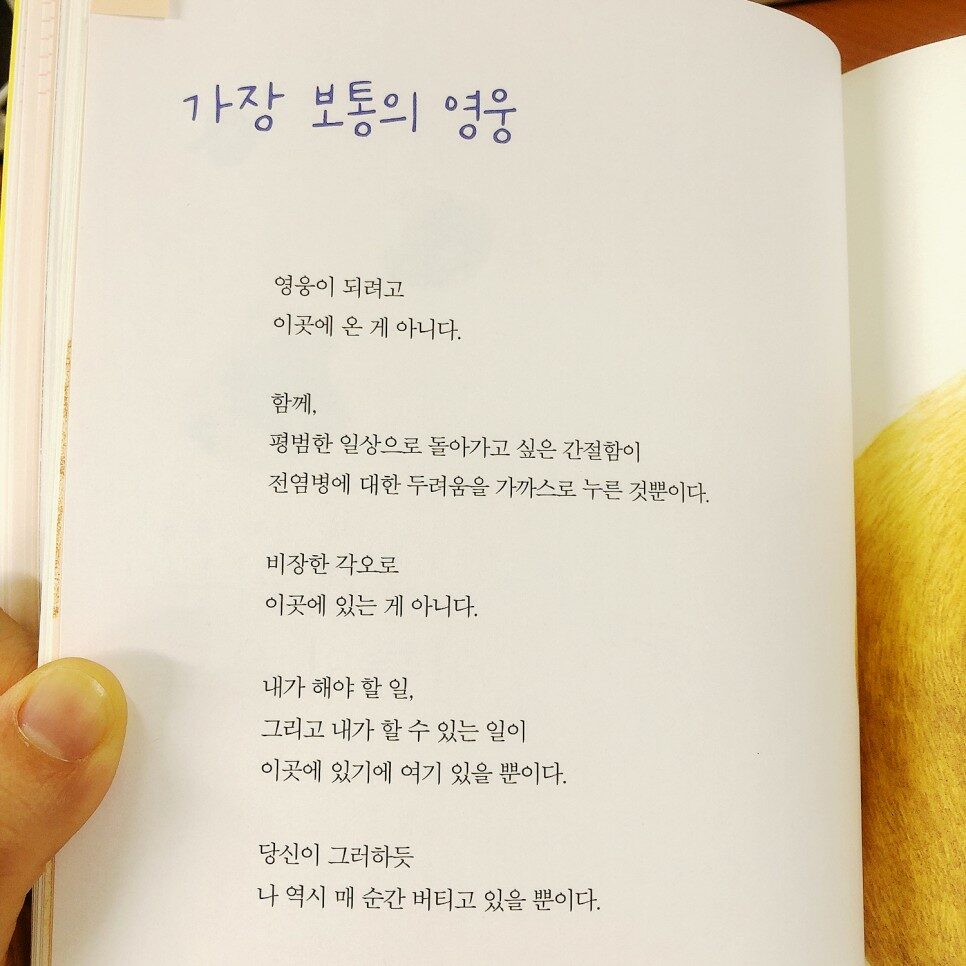 가장 보통의 영웅
영웅이 되려고
이곳에 온 게 아니다.
함께,
평범한 일상으로 돌아가고 싶은 간절함이
전염병에 대한 두려움을 가까스로 누른 것뿐이다.
비장한 각오로
이곳에 있는 게 아니다.
내가 해야 할 일,
그리고 내가 할 수 있는 일이
이곳에 있기에 여기 있을 뿐이다.
당신이 그러하듯
나 역시 매 순간 버티고 있을 뿐이다.